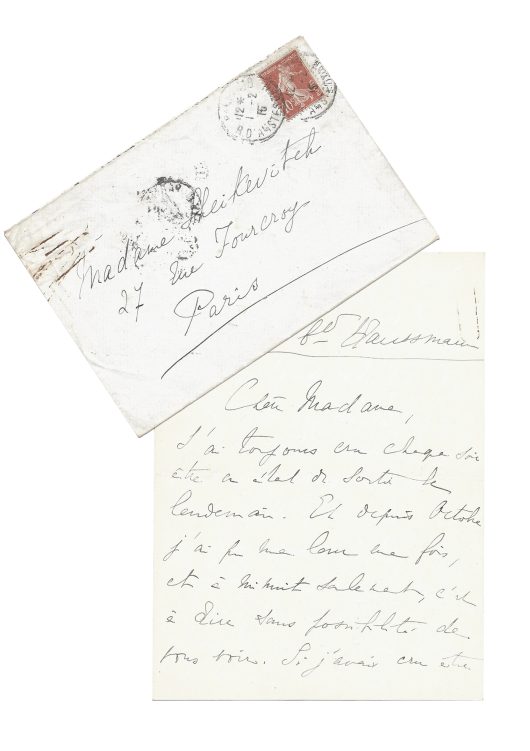 Madame Scheikevitch
27 rue Fourcroy
Paris
Bd Haussmann
Chère Madame,
J'ai toujours cru chaque soir
être en état de sortir le
lendemain. Et depuis Octobre
j'ai pu me lever une fois,
et à minuit seulement, c'est
à dire sans possibilité de
vous voir. Si j'avais cru être